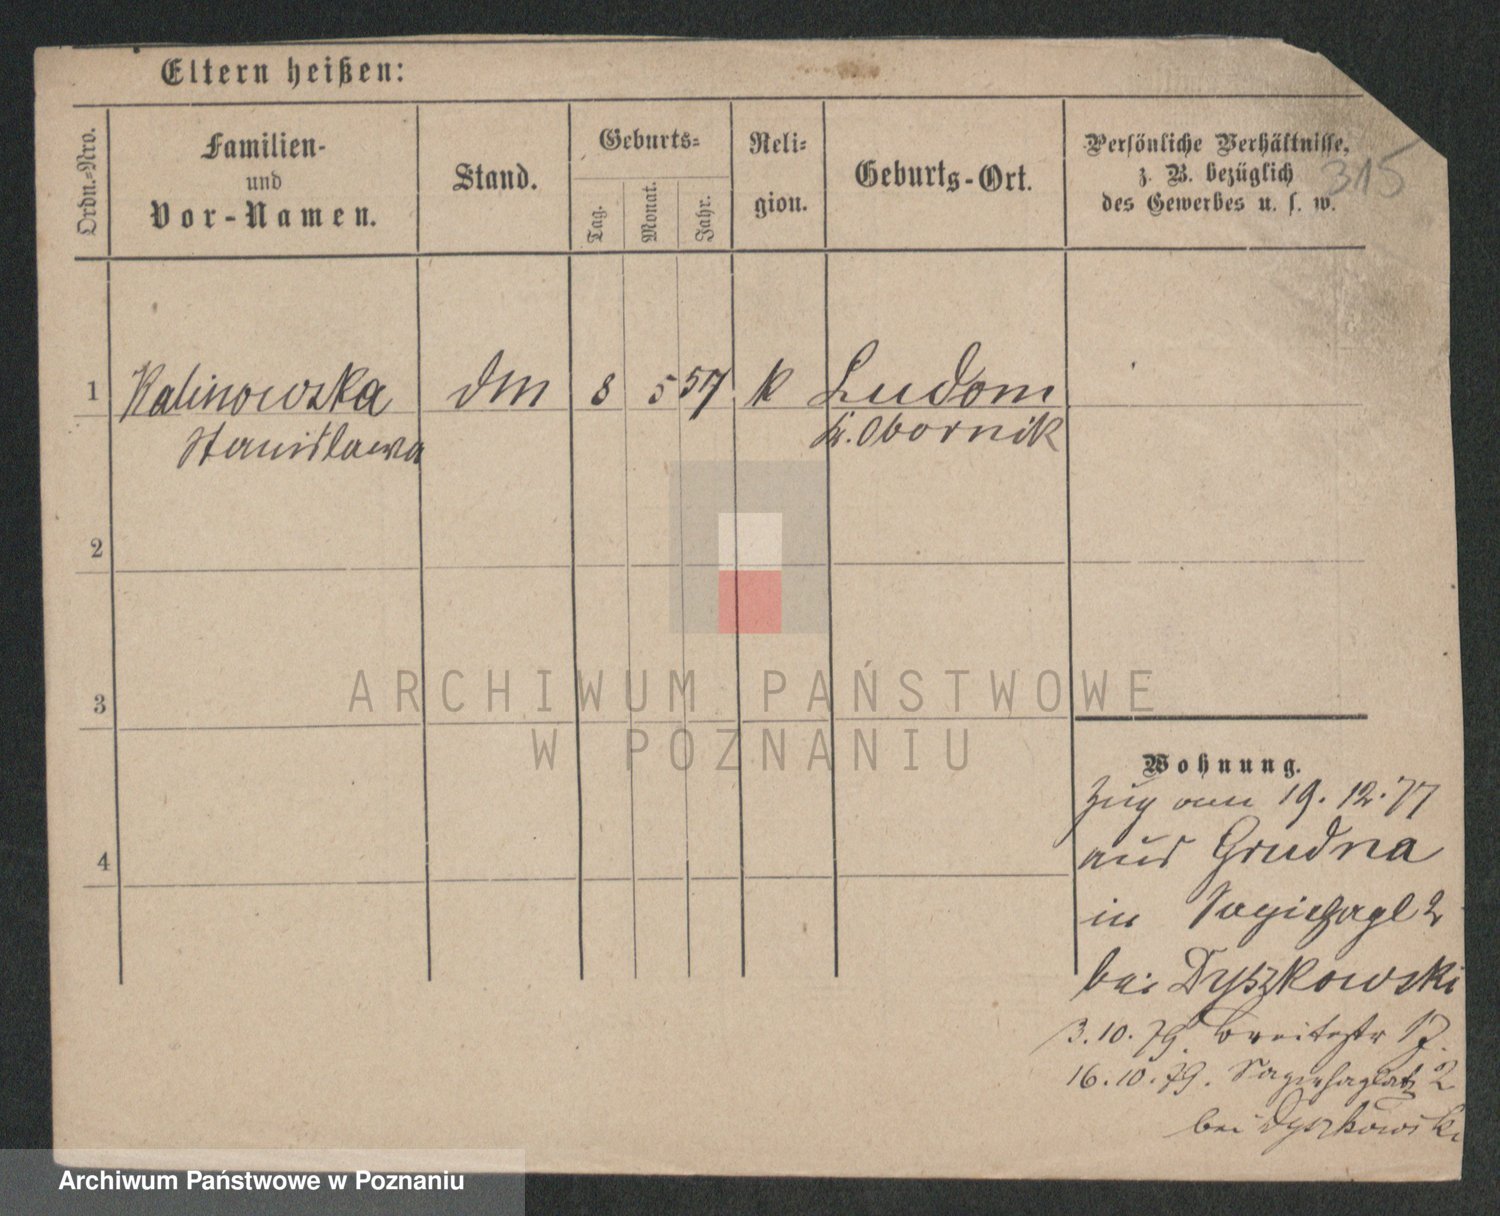 Eltern heißen:
Ordn.-Nro.
Familien-
und
Vor-Namen.
Stand.
Geburts-
Tag.
Monat.
Jahr.
Reli-
gion.
Geburts-Ort.
Persönliche Verhältnisse,
z. B. bezüglich
des Gewerbes u. s. w.
315
1
Kalinowska
Stanislawa
dm
8
5
57
k
Ludom
Kr. Obornik
2
3
4
Wohnung.
Zug vom 19.12.77
aus Grudna
in 2
bei Dyszkowski
3.10.79. Breitestr
16.10.79. Sapiehaplatz 2
bei Dyszkowski
ARCHIWUM PAŃSTWOWE
W POZNANIU
Archiwum Państwowe w Poznaniu